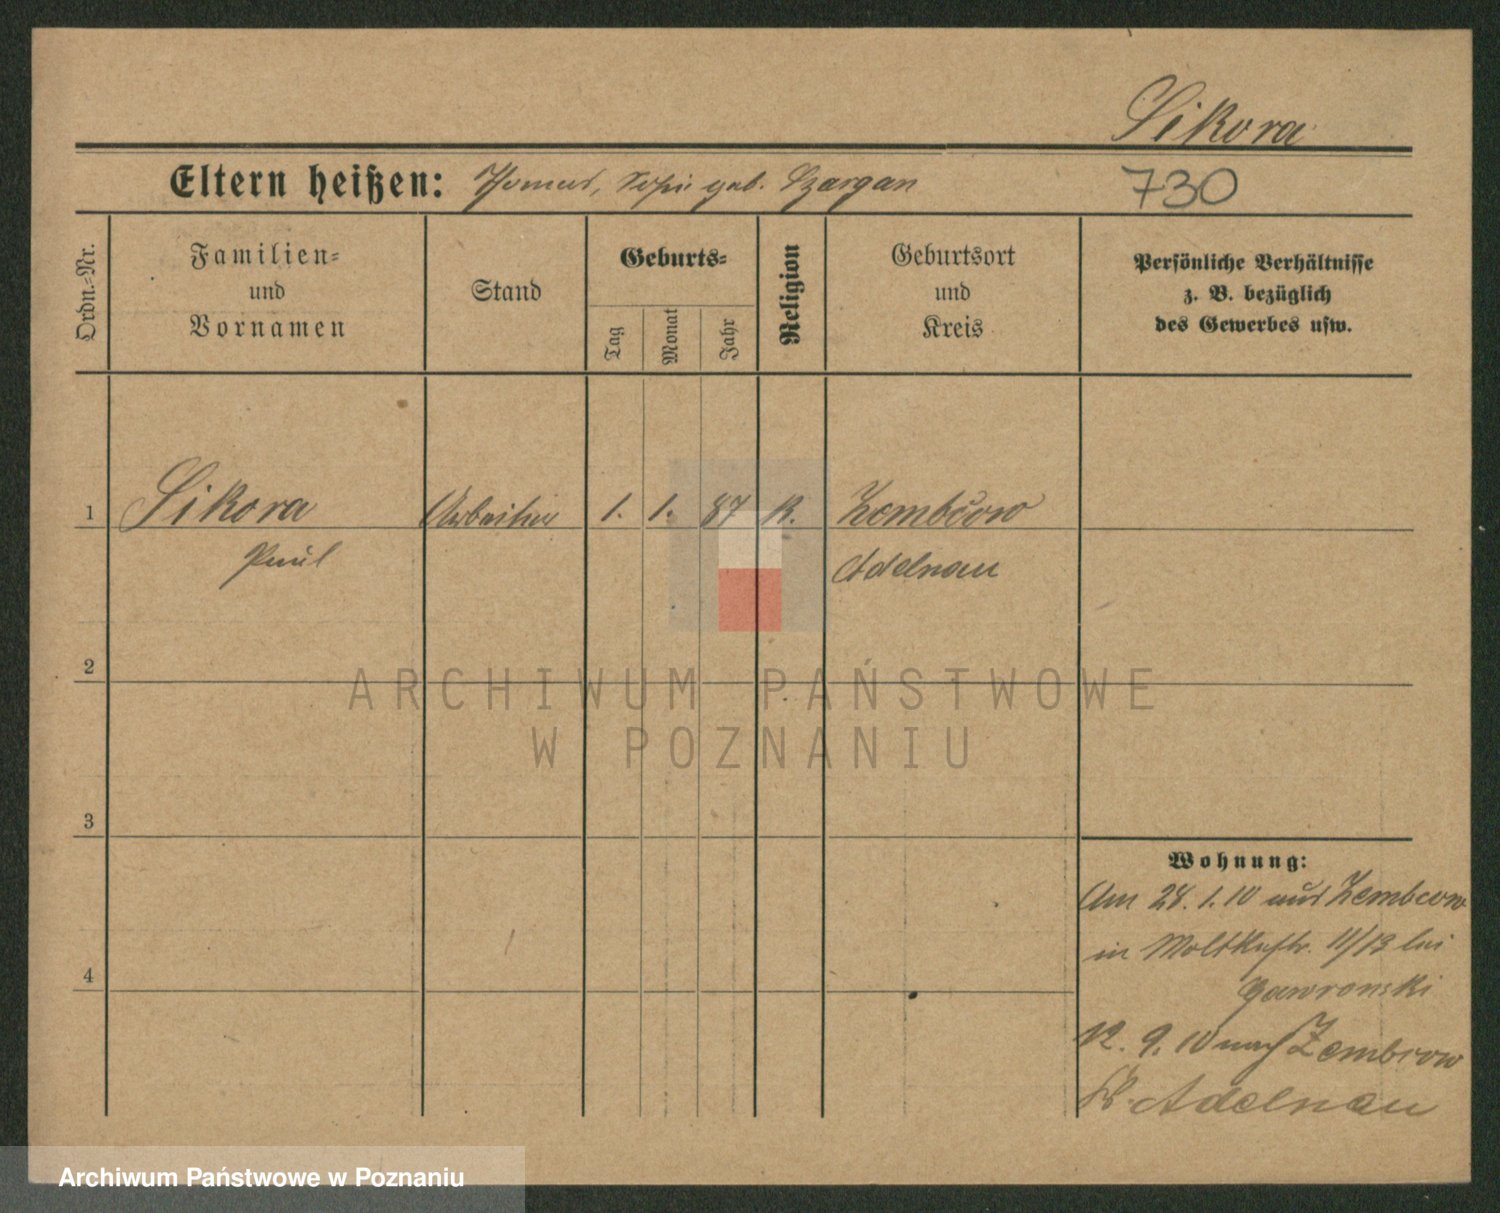 Sikora
Eltern heißen: Thomas, Sofie geb. Czargan
730
Ordn.-Nr.
Familien-
und
Vornamen
Stand
Geburts-
Tag
Monat
Jahr
Religion
Geburtsort
und
Kreis
Persönliche Verhältnisse
z. B. bezüglich
des Gewerbes usw.
1 Sikora Arbeiter 1. 1. 87 k. Zembcow
Paul Adelnau
2
3
4
Wohnung:
Am 28. 1. 10 aus Zembcow
in Moltkestr. 11/13 bei
Gawronski
12. 9. 10 nach Zembcow
Kr. Adelnau
ARCHIWUM PAŃSTWOWE
W POZNANIU
Archiwum Państwowe w Poznaniu